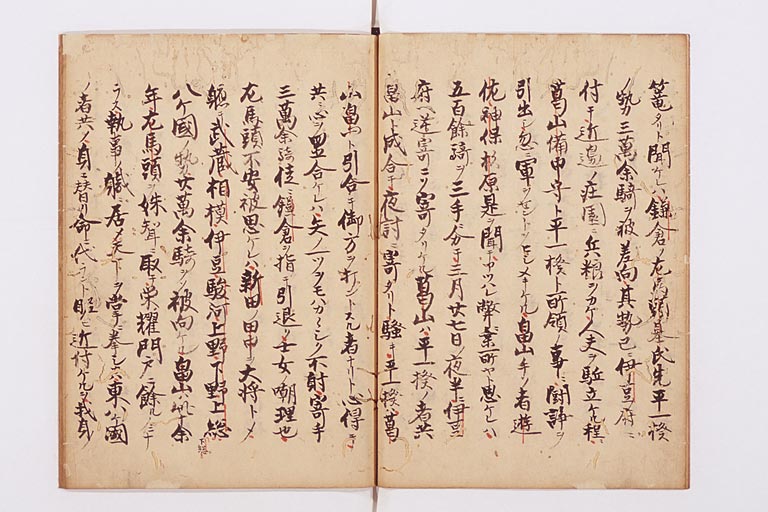 篭タリト聞ケレハ鎌倉ノ左馬頭基氏先平一揆
ノ勢三萬余騎ヲ被差向其勢已ニ伊豆府ニ
付テ近邊ノ庄園ニ兵粮ヲカケ人夫ヲ駈立ケル程ニ
葛山備中守ト平一揆ト所領ノ事ニ闘諍ヲ
引出シ忽ニ軍ヲセントソヒシメキケル畠山手ノ者遊
佐神保杉原是ヲ聞テ ハ弊ニ乗所ヤ思ケレハ
五百餘騎ヲ三手ニ分テ三月廿七日ノ夜半ニ伊豆
府ヘ逆寄ニソ寄タリケル葛山ハ平一揆ノ者共
畠山ト成合テ夜討ニ寄タリト騒キ平一揆ハ葛
山畠山ト引合テ御方ヲ打ントスル者ナリト心得テ
共ニ心ヲ置合ケレハ矢ノ一ツヲモハカ〱シク不射寄手
三萬余騎徒ニ鎌倉ヲ指テ引退ク士女ノ嘲理也
左馬頭不安被思ケレハ新田ノ田中ヲ大将トメ
軈テ武蔵相模伊豆駿河上野下野上総下総
八ケ國ノ勢廿萬余騎ヲソ被向ケル畠山ハ此余
年左馬頭ヲ妹聟ニ取テ栄耀門戸ニ餘ルノミナ
ラス執事ノ職ニ居メ天下ヲ掌ニ拳シカハ東八ケ國
ノ者共ノ身ニ替リ命ニ代ラント 近付ケルヲ我身